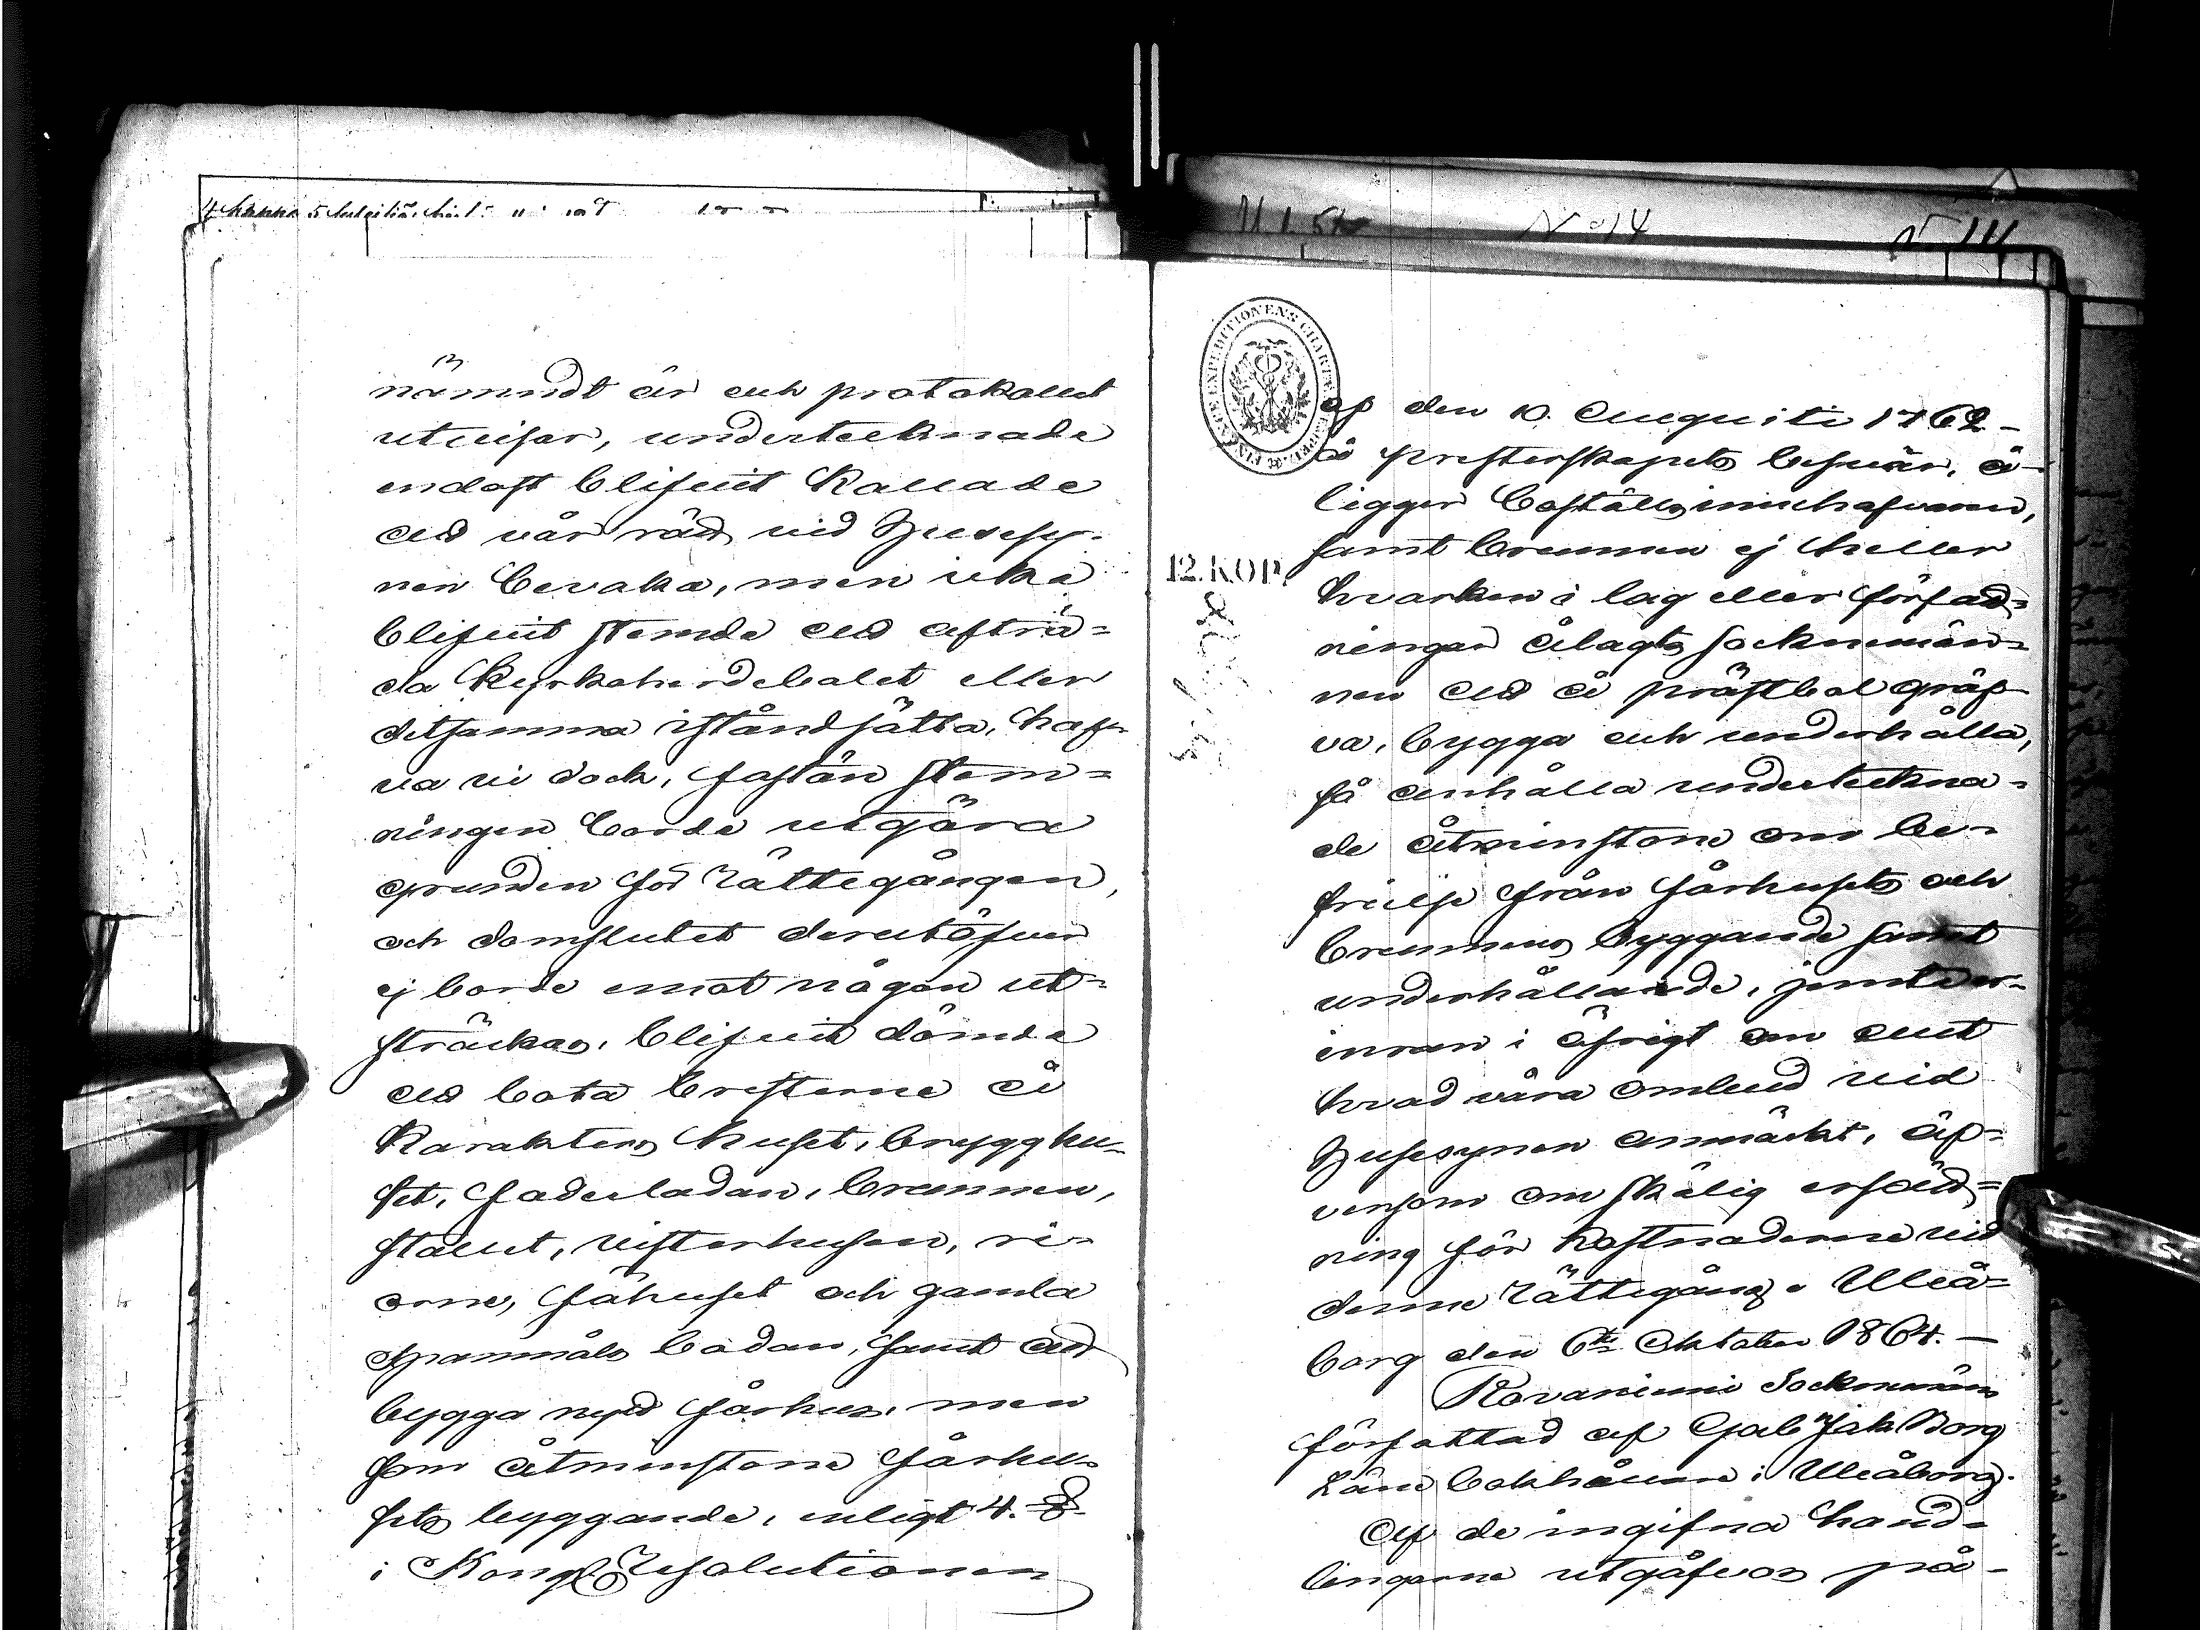 nämndt är och protokollet
utvisar, undertecknade
endast blifvit kallade
att vår rätt vid Husesy-
nen bevaka, men icke
blifvit stemde att afträ-
da Kyrkoherdebolet eller
detsamma iståndsätta, haf-
va vi dock, fastän stem-
ningen borde utgöra
grunden för rättegången,
och domslutet derutöfver
ej borde emot någon ut-
sträckas, blifvit dömda
att bota bristerne å
Karakters huset, brygghu-
set, foderladan, brunnen,
stallet, visterhusen, ri-
orne, fähuset och gamla
spannmåls bodan, samt att
bygga nytt fårhus, men
som åtminstone fårhu-
sets byggande, enligt 4. §
i Kongl. Resolutionen
N 14
FINSKE EXPEDITIONENS CHARTÆ
12. KOP.
af den 10. Augusti 1762
å presterskapets besvär, å-
ligger boställsinnehafvaren,
samt brunnen ej heller
hvarken i lag eller författ-
ningar ålagts sockenmän-
nen att å prästbol gräf-
va, bygga och underhålla,
så anhålla underteckna-
de åtminstone om be-
frielse från fårhusets och
brunnens byggande samt
underhållande, jemte er-
inran i öfrigt om allt
hvad våra ombud vid
Husesynen anmärkt, äf-
vensom om skälig ersätt-
ning för kostnaderne vid
denne rättegång. Uleå-
borg den 6te Oktober 1864.
Rovaniemi Sockenmän
författad af Gab Jak Borg
Läns bokhållare i Uleåborg.
Af de ingifna hand-
lingarne utgåfvos på-